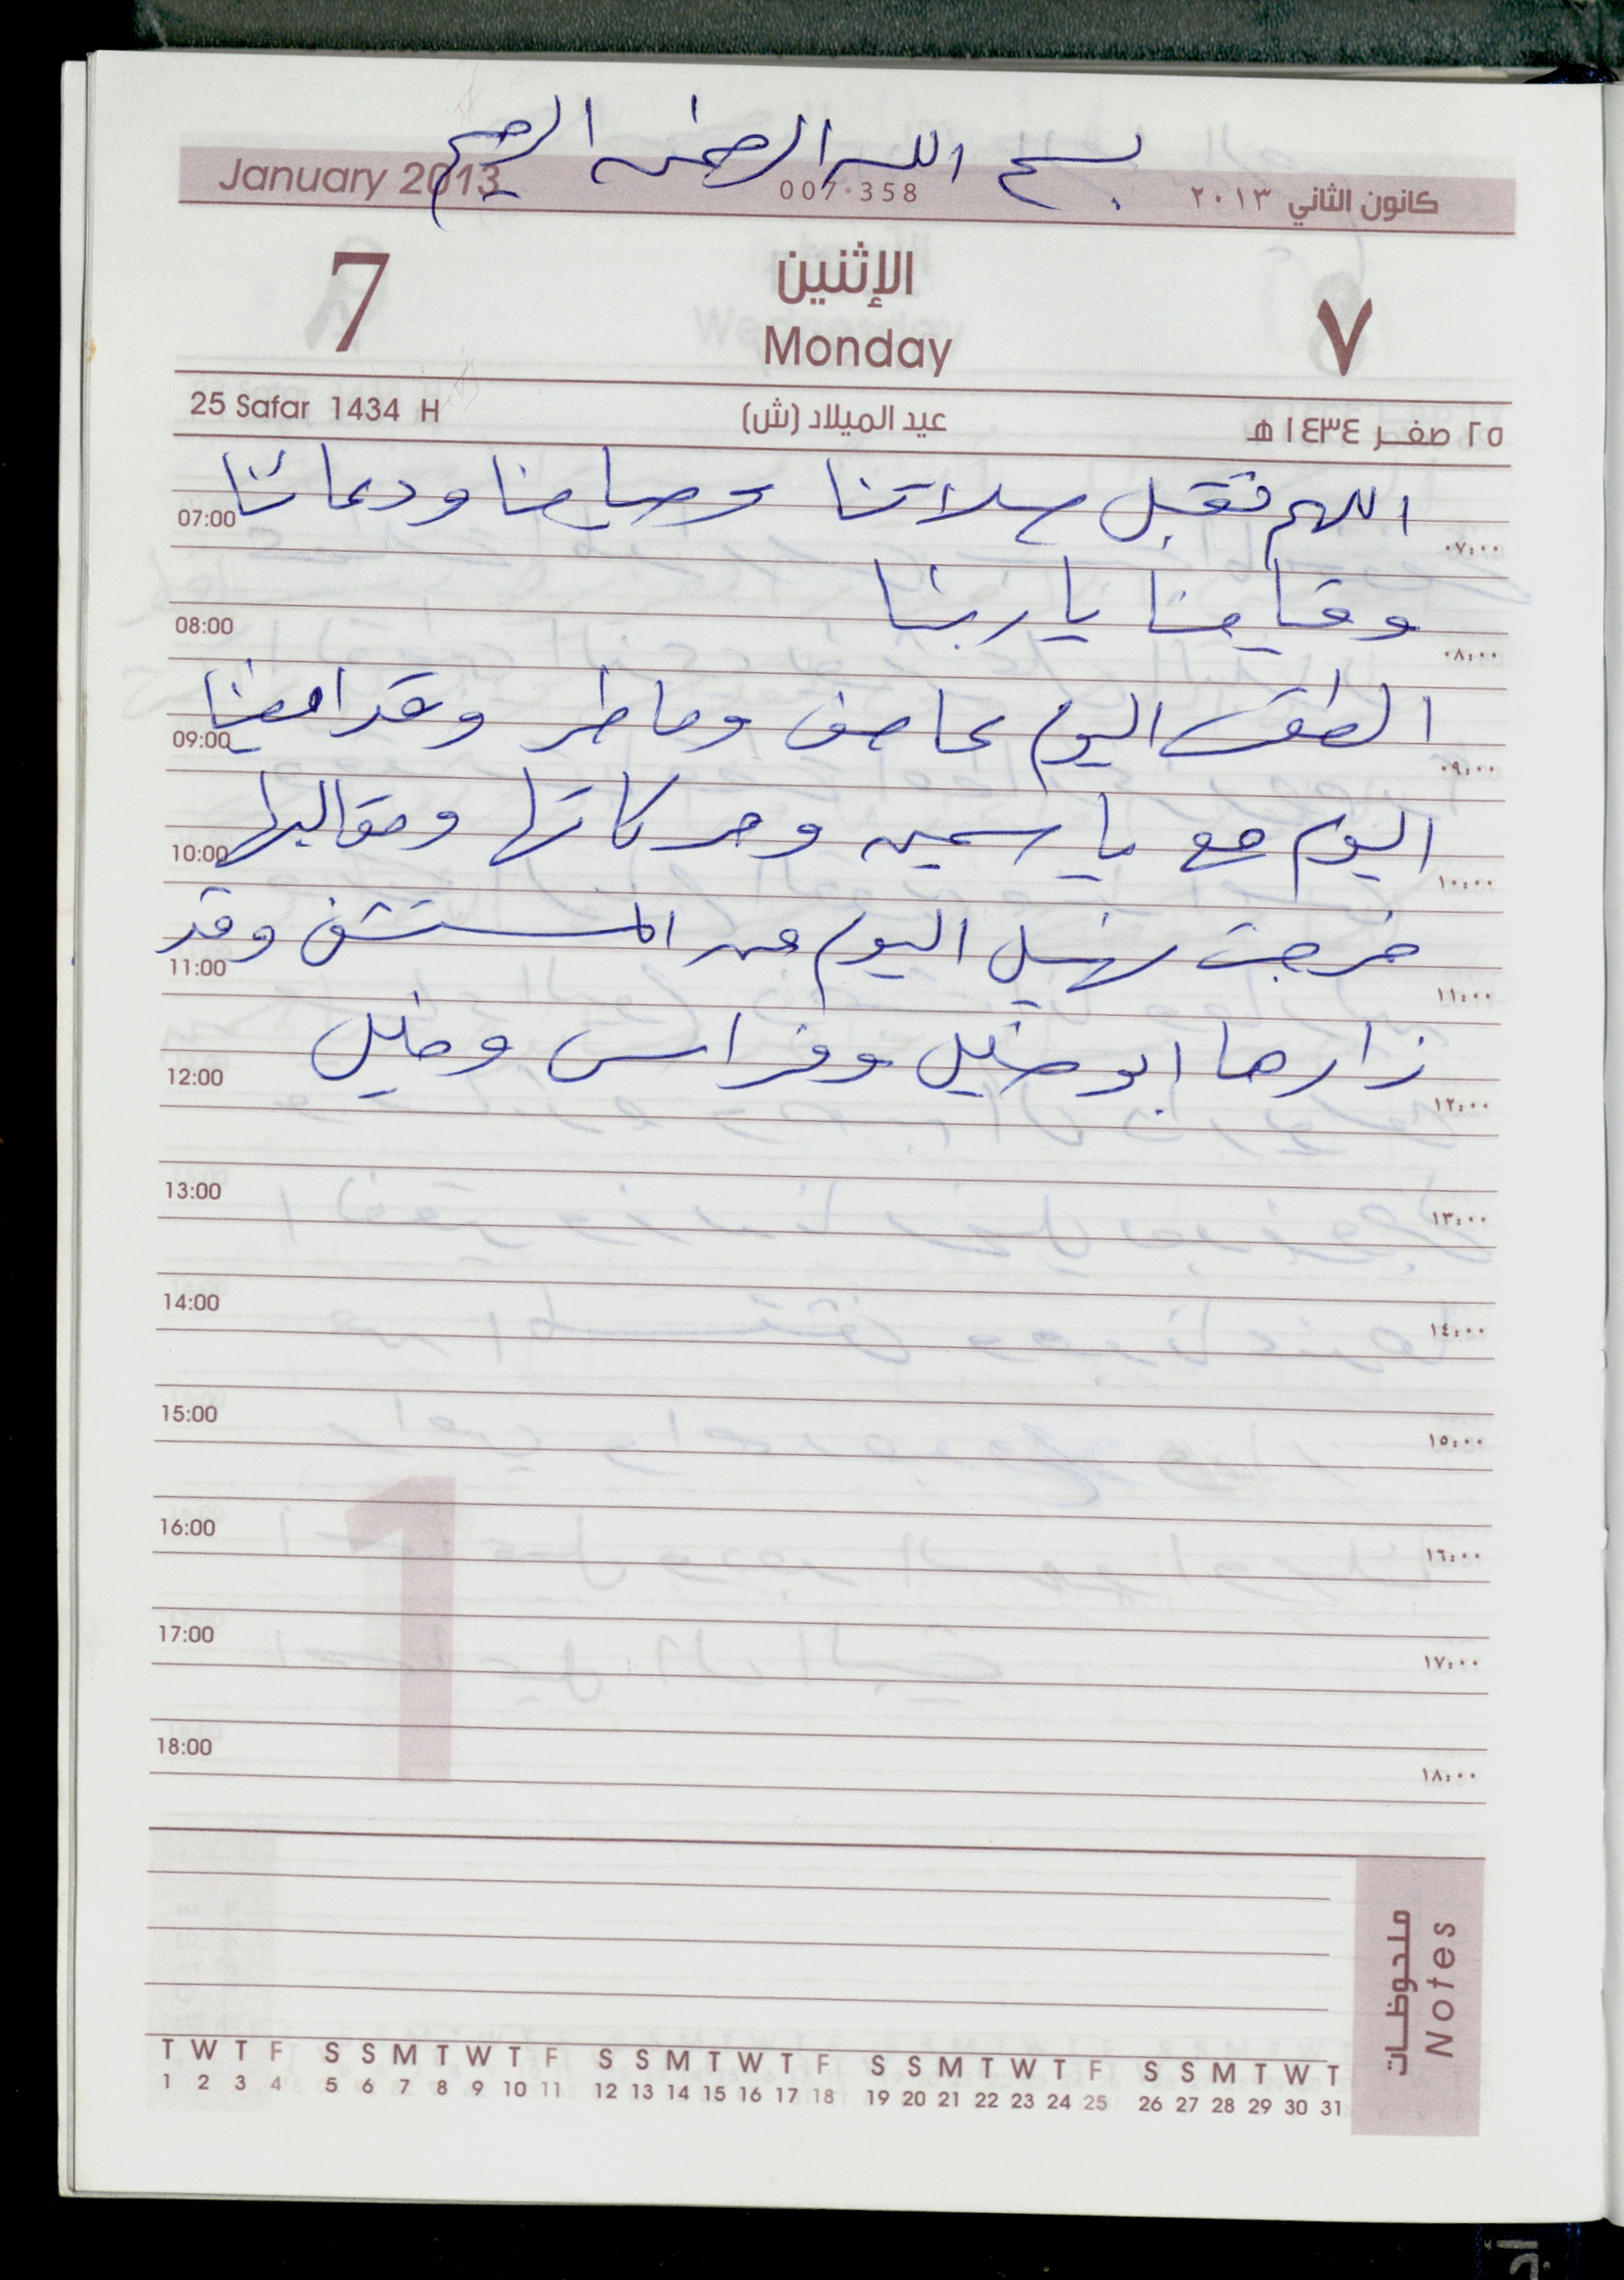 بسم الله الرحمن الرحيم
January 2013 007-358 كانون الثاني ٢٠١٣
7 الإثنين ٧
Monday
25 Safar 1434 H عيد الميلاد (ش) ٢٥ صفر ١٤٣٤ هـ
اللهم تقبل صلاتنا وصيامنا ودعائنا
07:00 ٠٧:٠٠
وقيامنا يا ربنا
08:00 ٠٨:٠٠
الطقس اليوم عاصف وماطر وقد امضينا
09:00 ٠٩:٠٠
اليوم مع ياسمين وحركاتها ومقالبها
10:00 ١٠:٠٠
خرجت اليوم من المستشفى وقد
11:00 ١١:٠٠
زارها ابو خليل وفراس وخليل
12:00 ١٢:٠٠
13:00 ١٣:٠٠
14:00 ١٤:٠٠
15:00 ١٥:٠٠
16:00 ١٦:٠٠
17:00 ١٧:٠٠
18:00 ١٨:٠٠
1
ملحوظات
Notes
T W T F S S M T W T F S S M T W T F S S M T W T F S S M T W T
1 2 3 4 5 6 7 8 9 10 11 12 13 14 15 16 17 18 19 20 21 22 23 24 25 26 27 28 29 30 31